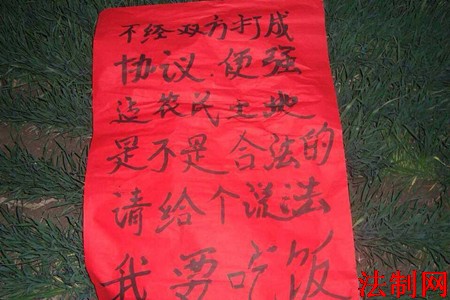 不经双方打成
协议.便强
造农民土地
是不是合法的
请给个说法
我要吃饭
法制网